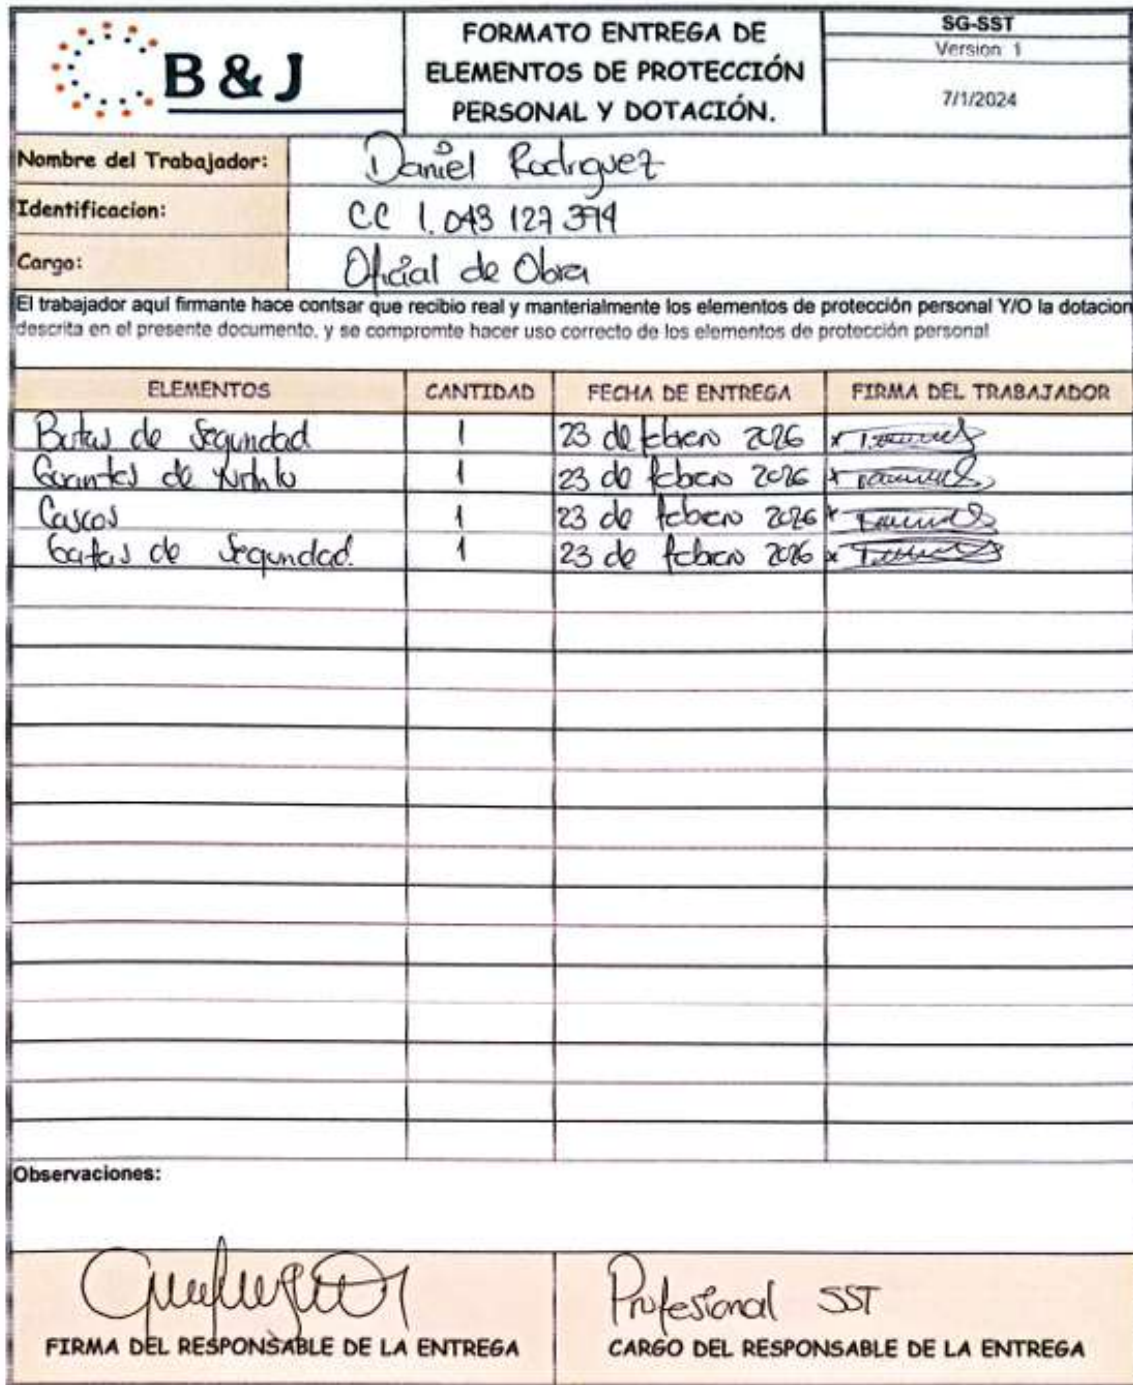 B & J
FORMATO ENTREGA DE
ELEMENTOS DE PROTECCIÓN
PERSONAL Y DOTACIÓN.
SG-SST
Version 1
7/1/2024
Nombre del Trabajador: Daniel Rodriguez
Identificacion: CC 1.043 127 394
Cargo: Oficial de Obra
El trabajador aqui firmante hace contsar que recibio real y manterialmente los elementos de protección personal Y/O la dotacion
descrita en el presente documento, y se compromte hacer uso correcto de los elementos de protección personal
ELEMENTOS CANTIDAD FECHA DE ENTREGA FIRMA DEL TRABAJADOR
Botas de Seguridad 1 23 de febrero 2026 x
Guantes de Nitrilo 1 23 de febrero 2026 x
Cascos 1 23 de febrero 2026 x
Gafas de Seguridad. 1 23 de febrero 2026 x
Observaciones:
Profesional SST
FIRMA DEL RESPONSABLE DE LA ENTREGA CARGO DEL RESPONSABLE DE LA ENTREGA